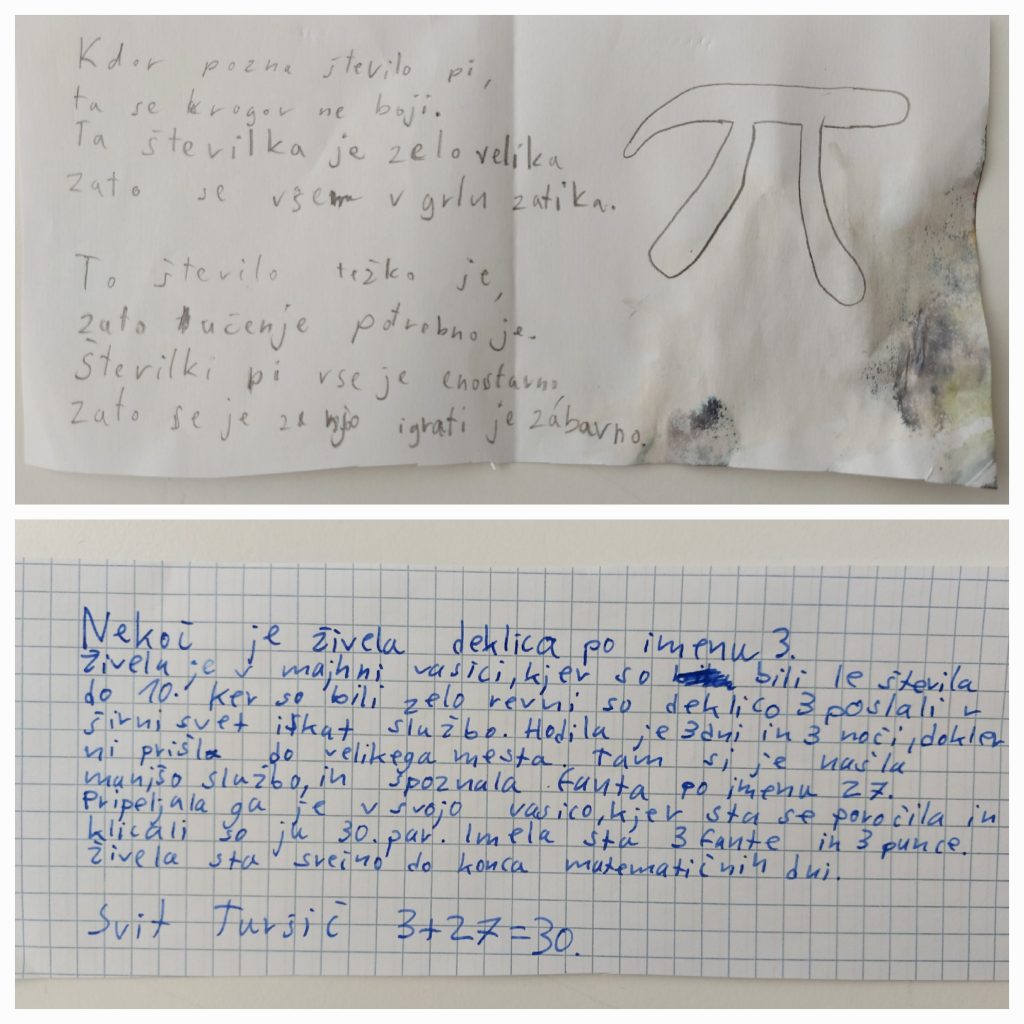 Kdor pozna število pi,
ta se krogov ne boji.
Ta številka je zelo velika
zato se všem v grlu zatika.
To število težko je,
zato učenje potrebno je.
Številki pi vse je enostavno
Zato se je z njo igrati je zábavno.
Nekoč je živela deklica po imenu 3.
Živela je v majhni vasici, kjer so bili le števila
do 10. ker so bili zelo revni so deklico 3 poslali v
širni svet iskat službo. Hodila je 3dni in 3 noči, dokler
ni prišla do velikega mesta. Tam si je našla
manjšo službo, in spoznala fanta po imenu 27.
Pripeljala ga je v svojo vasico, kjer sta se poročila in
klicali so ju 30. par. Imela sta 3 fante in 3 punce.
Živela sta srečno do konca matematičnih dni.
Svit Turšič 3+27=30.